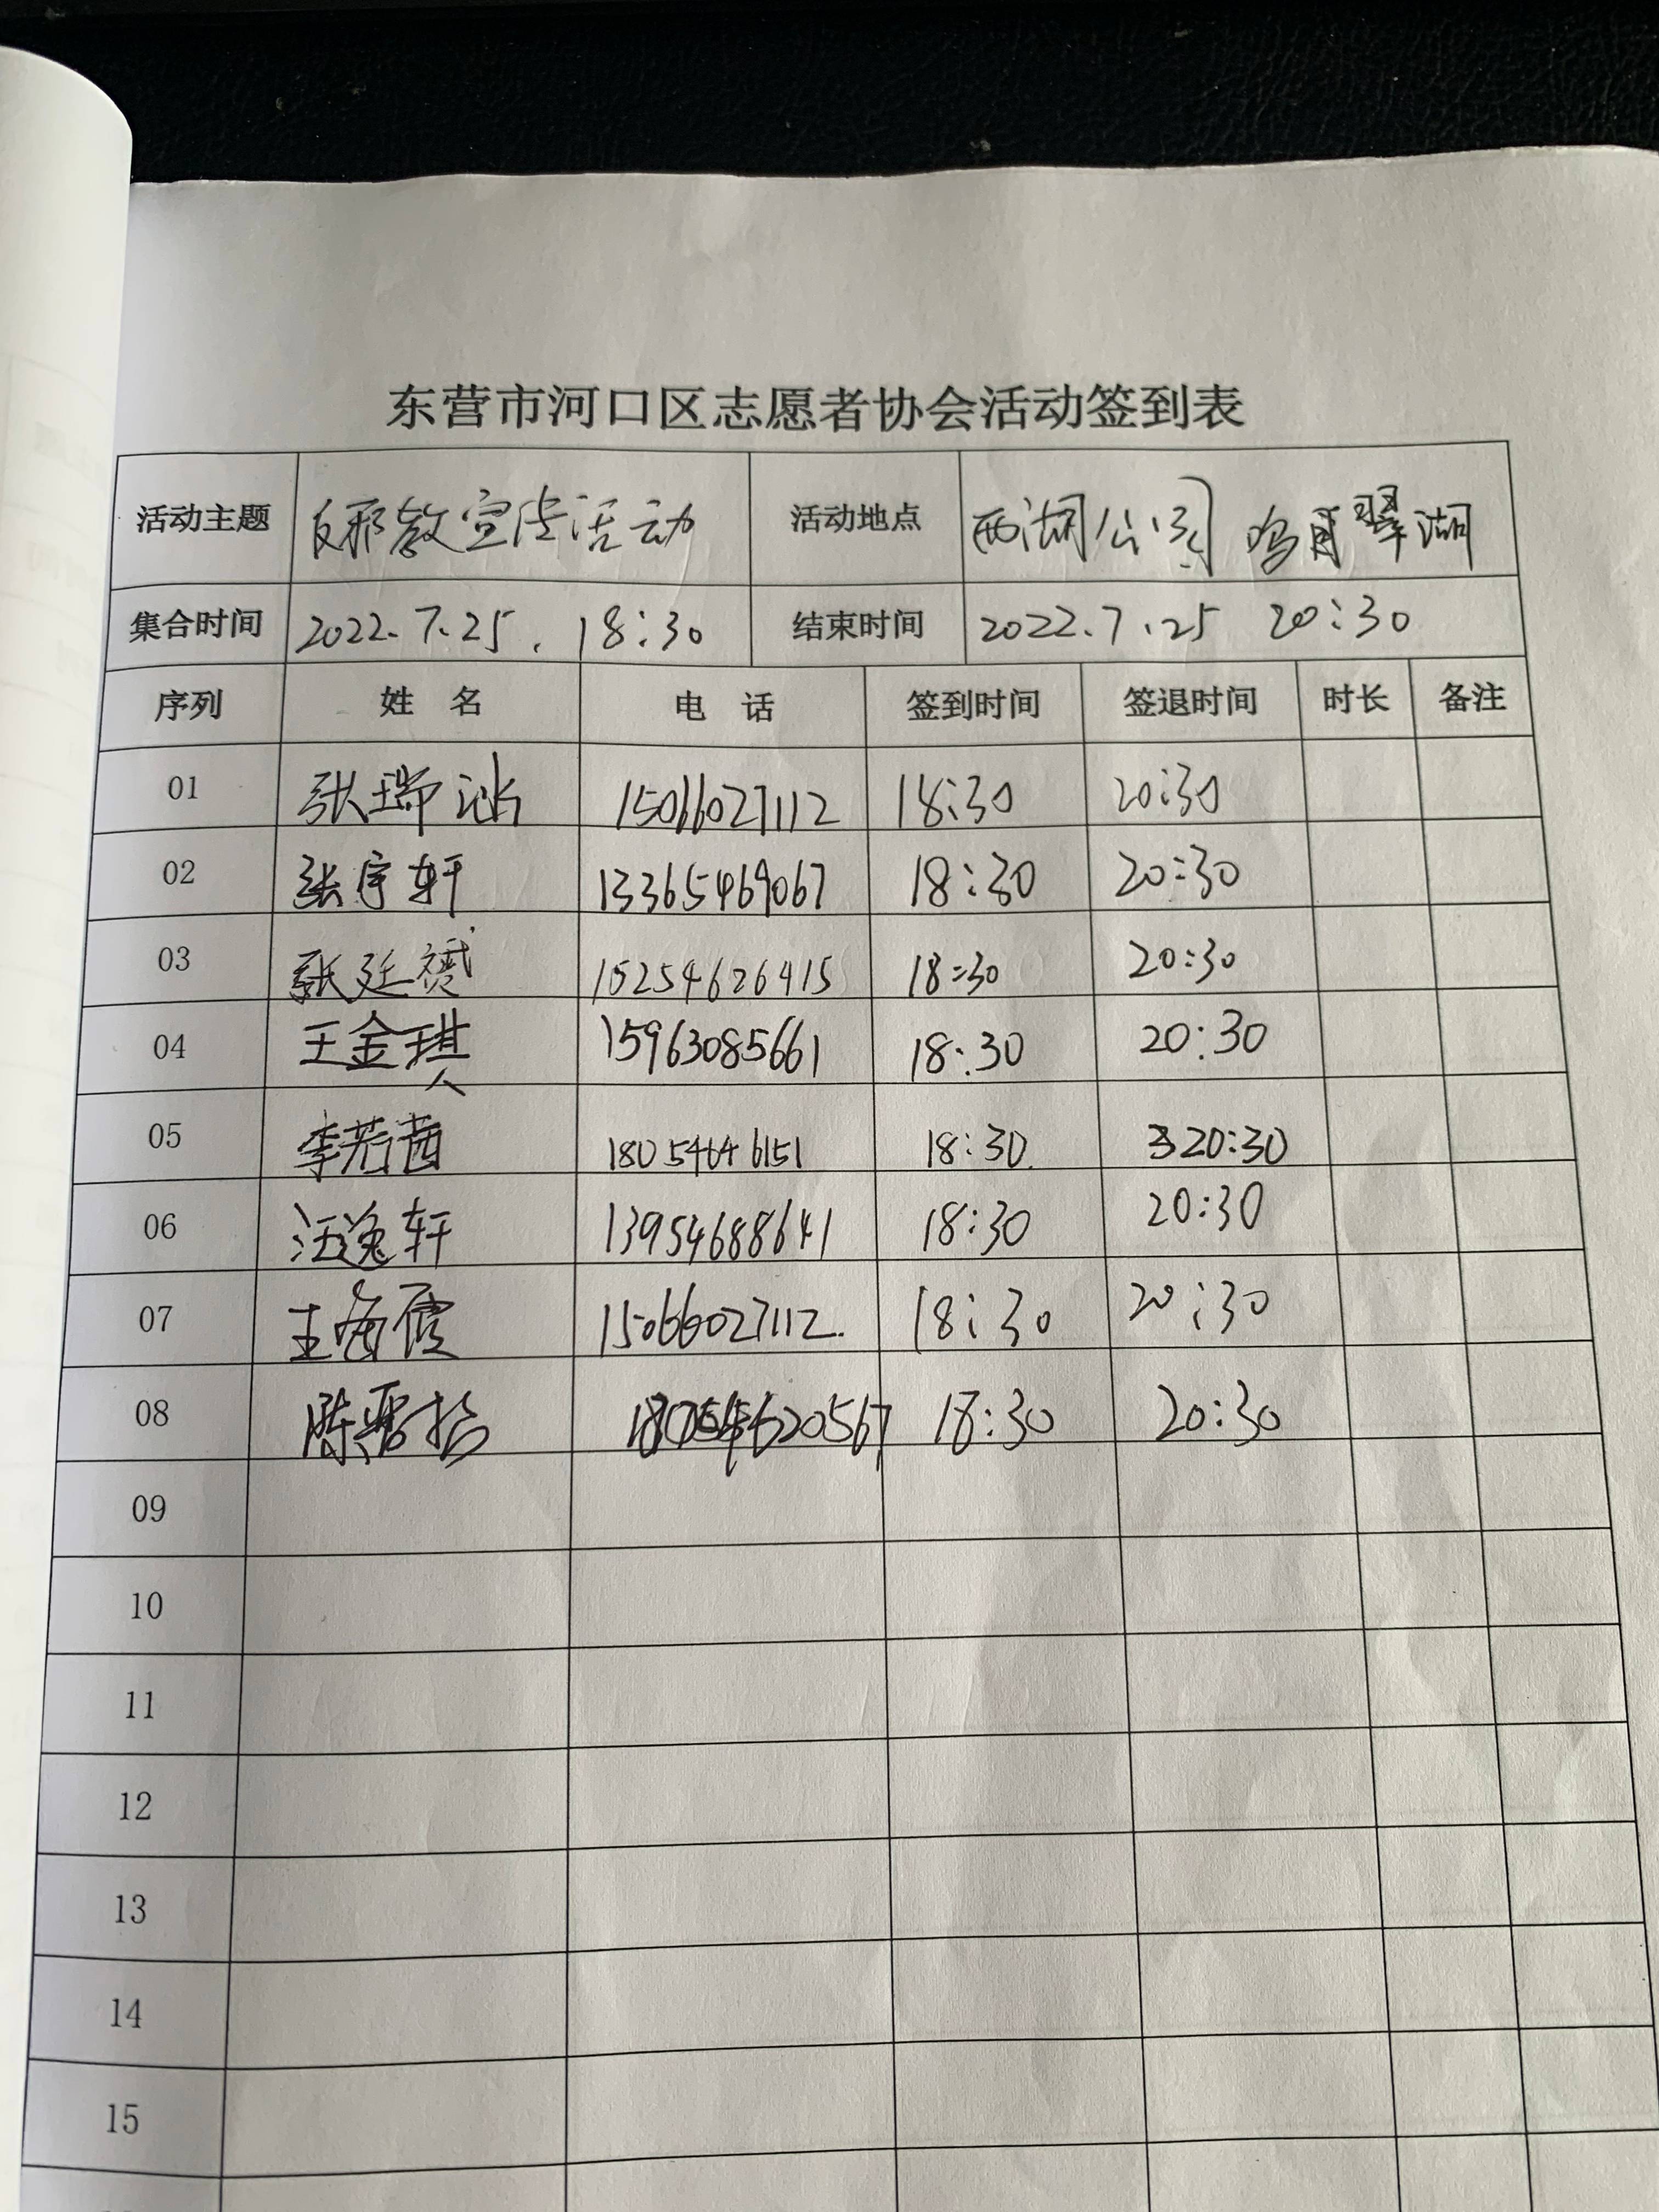 东营市河口区志愿者协会活动签到表
活动主题 反邪教宣传活动 活动地点 西湖公园 鸣翠湖
集合时间 2022.7.25. 18:30 结束时间 2022.7.25 20:30
序列 姓名 电话 签到时间 签退时间 时长 备注
01 张瑞 15066027112 18:30 20:30
02 张宇轩 13365469067 18:30 20:30
03 张廷 15254626415 18:30 20:30
04 王金琪 15963085661 18:30 20:30
05 李若茜 18054646151 18:30 20:30
06 汪逸轩 13954688641 18:30 20:30
07 王海霞 15066027112. 18:30 20:30
08 陈 18:30 20:30
09
10
11
12
13
14
15